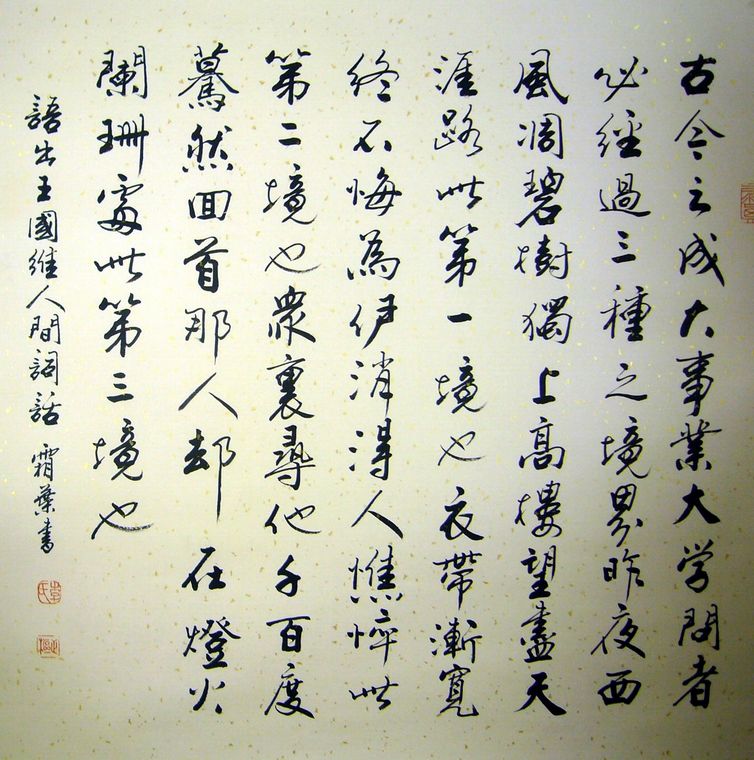 古今之成大事業大学問者
必經過三種之境界昨夜西
風凋碧樹獨上高樓望盡天
涯路此第一境也衣帶漸寬
終不悔為伊消得人憔悴此
第二境也眾裏尋他千百度
驀然回首那人却在燈火
闌珊處此第三境也
語出王國維人間詞話 霜葉書